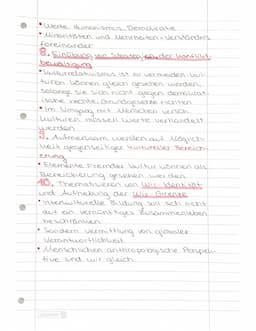 • Werte: Humanismus, Demokratie
• Minoritäten und Mehrheiten → Verständnis
füreinander
8. Einübung von Strategien der Konflikt-
bewältigung
• Kulturrelativismus ist zu vermeiden. Kul-
turen können gleich gesehen werden,
solange sie sich nicht gegen demokrat-
ische, rechtl. Grundgesetze richten
• Im Umgang mit Menschen versch.
Kulturen müssen Werte verhandelt
werden
9. Aufmerksam werden auf Möglich-
keit gegenseitiger kultureller Bereich-
erung
• Elemente fremder Kultur können als
Bereicherung gesehen werden
10. Thematisieren von Wir-Identität
und Aufhebung der Wir-Grenze
• Interkulturelle Bildung soll sich nicht
auf ein vernünftiges Zusammenleben
beschränken
• Sondern Vermittlung von globaler
Verantwortlichkeit
• Menschlichen anthropologische Perspek-
tive sind wir gleich